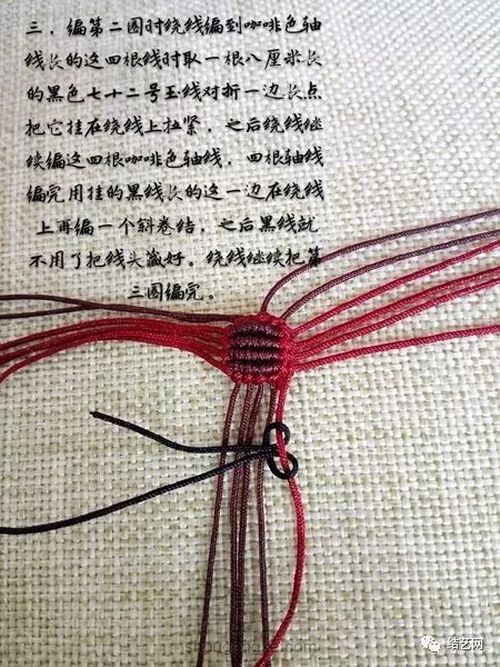 三，编第二圈时绕线编到咖啡色轴
线长的这四根线时取一根八厘米长
的黑色七十二号玉线对折一边长点
把它挂在绕线上拉紧，之后绕线继
续编这四根咖啡色轴线，四根轴线
编完用挂的黑线长的这一边在绕线
上再编一个斜卷结，之后黑线就
不用了把线头藏好。绕线继续把第
三圈编完。
结艺网